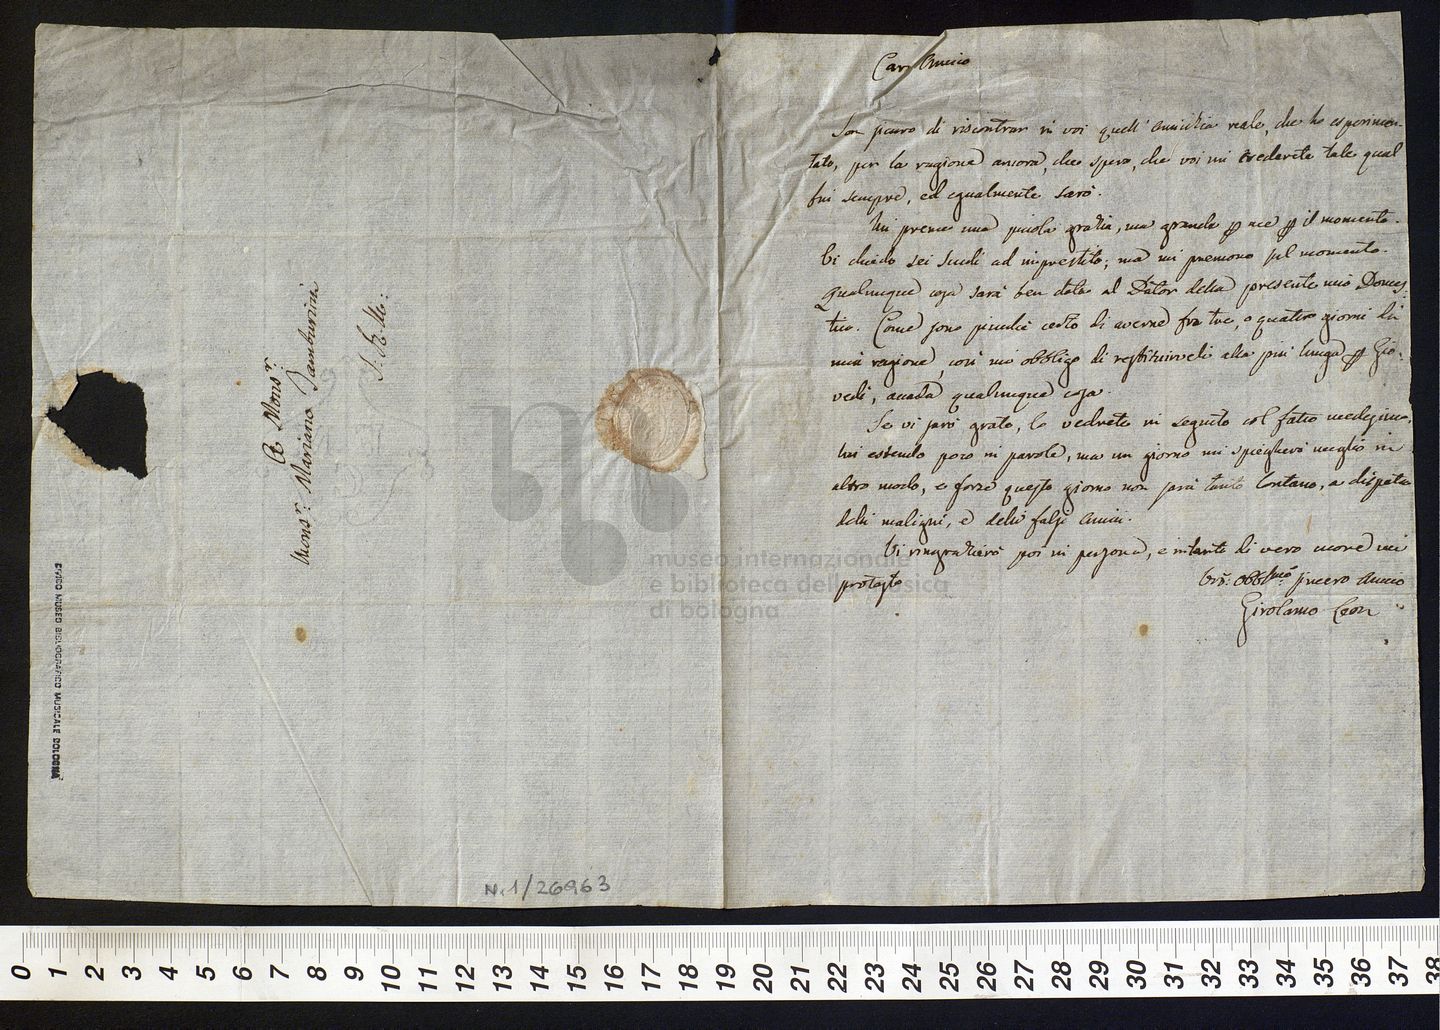 A Monsr.
Monsr. Mariano Tamburini
S. R. M.:
CIVICO MUSEO BIBLIOGRAFICO MUSICALE BOLOGNA
N.1/26963
Caro Amico
Son sicuro di riscontrar in voi quell' amicizia reale, che ho esperimen-
tato, per la ragione ancora, che spero, che voi mi crederete tale qual
fui sempre, ed egualmente sarò.
Mi preme una picola grazia, ma grande p me p il momento.
Vi chiedo sei scudi ad imprestito; ma mi premono sul momento.
Qualunque cosa sarà ben data al Dator della presente mio Domes-
tico. Come sono sicuro di averne fra tre, o quatro giorni di
mia ragione, così mi obbligo di restituirveli alla più lunga p Gio-
vedì, accada qualunque cosa.
Se vi sarò grato, lo vedrete in seguito col fatto medesimo,
essendo poco in parole, ma un giorno mi spiegherò meglio in
altro modo, e forse questo giorno non sarà tanto lontano, a dispetto
delli maligni, e delli falsi amici.
Vi ringrazierò poi in persona, e intanto di vero cuore mi
protesto
Vro: Obblmo: sincero Amico
Girolamo Leon
museo internazionale
e biblioteca della musica
di bologna
0 1 2 3 4 5 6 7 8 9 10 11 12 13 14 15 16 17 18 19 20 21 22 23 24 25 26 27 28 29 30 31 32 33 34 35 36 37 38